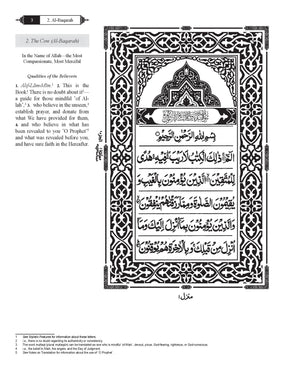 3 2. Al-Baqarah
2. The Cow (Al-Baqarah)
In the Name of Allah—the Most
Compassionate, Most Merciful
Qualities of the Believers
1. Alif-Lãm-Mĩm.¹ 2. This is the
Book! There is no doubt about it²—
a guide for those mindful ˹of Al-
lah˺,³ 3. who believe in the unseen,⁴
establish prayer, and donate from
what We have provided for them,
4. and who believe in what has
been revealed to you ˹O Prophet˺⁵
and what was revealed before you,
and have sure faith in the Hereafter.
بِسْمِ اللّٰهِ الرَّحْمٰنِ الرَّحِيْمِ
الٓمّٓ ذٰلِكَ الْكِتٰبُ لَا رَيْبَ فِيْهِ هُدًى
لِّلْمُتَّقِيْنَ الَّذِيْنَ يُؤْمِنُوْنَ بِالْغَيْبِ وَ
يُقِيْمُوْنَ الصَّلٰوةَ وَمِمَّا رَزَقْنٰهُمْ يُنْفِقُوْنَ
وَالَّذِيْنَ يُؤْمِنُوْنَ بِمَآ اُنْزِلَ اِلَيْكَ وَمَآ
اُنْزِلَ مِنْ قَبْلِكَ وَبِالْاٰخِرَةِ هُمْ يُوْقِنُوْنَ
منزل
1 See Stylistic Features for information about these letters.
2 i.e., there is no doubt regarding its authenticity or consistency.
5 See Notes on Translation for information about the use of "O Prophet".